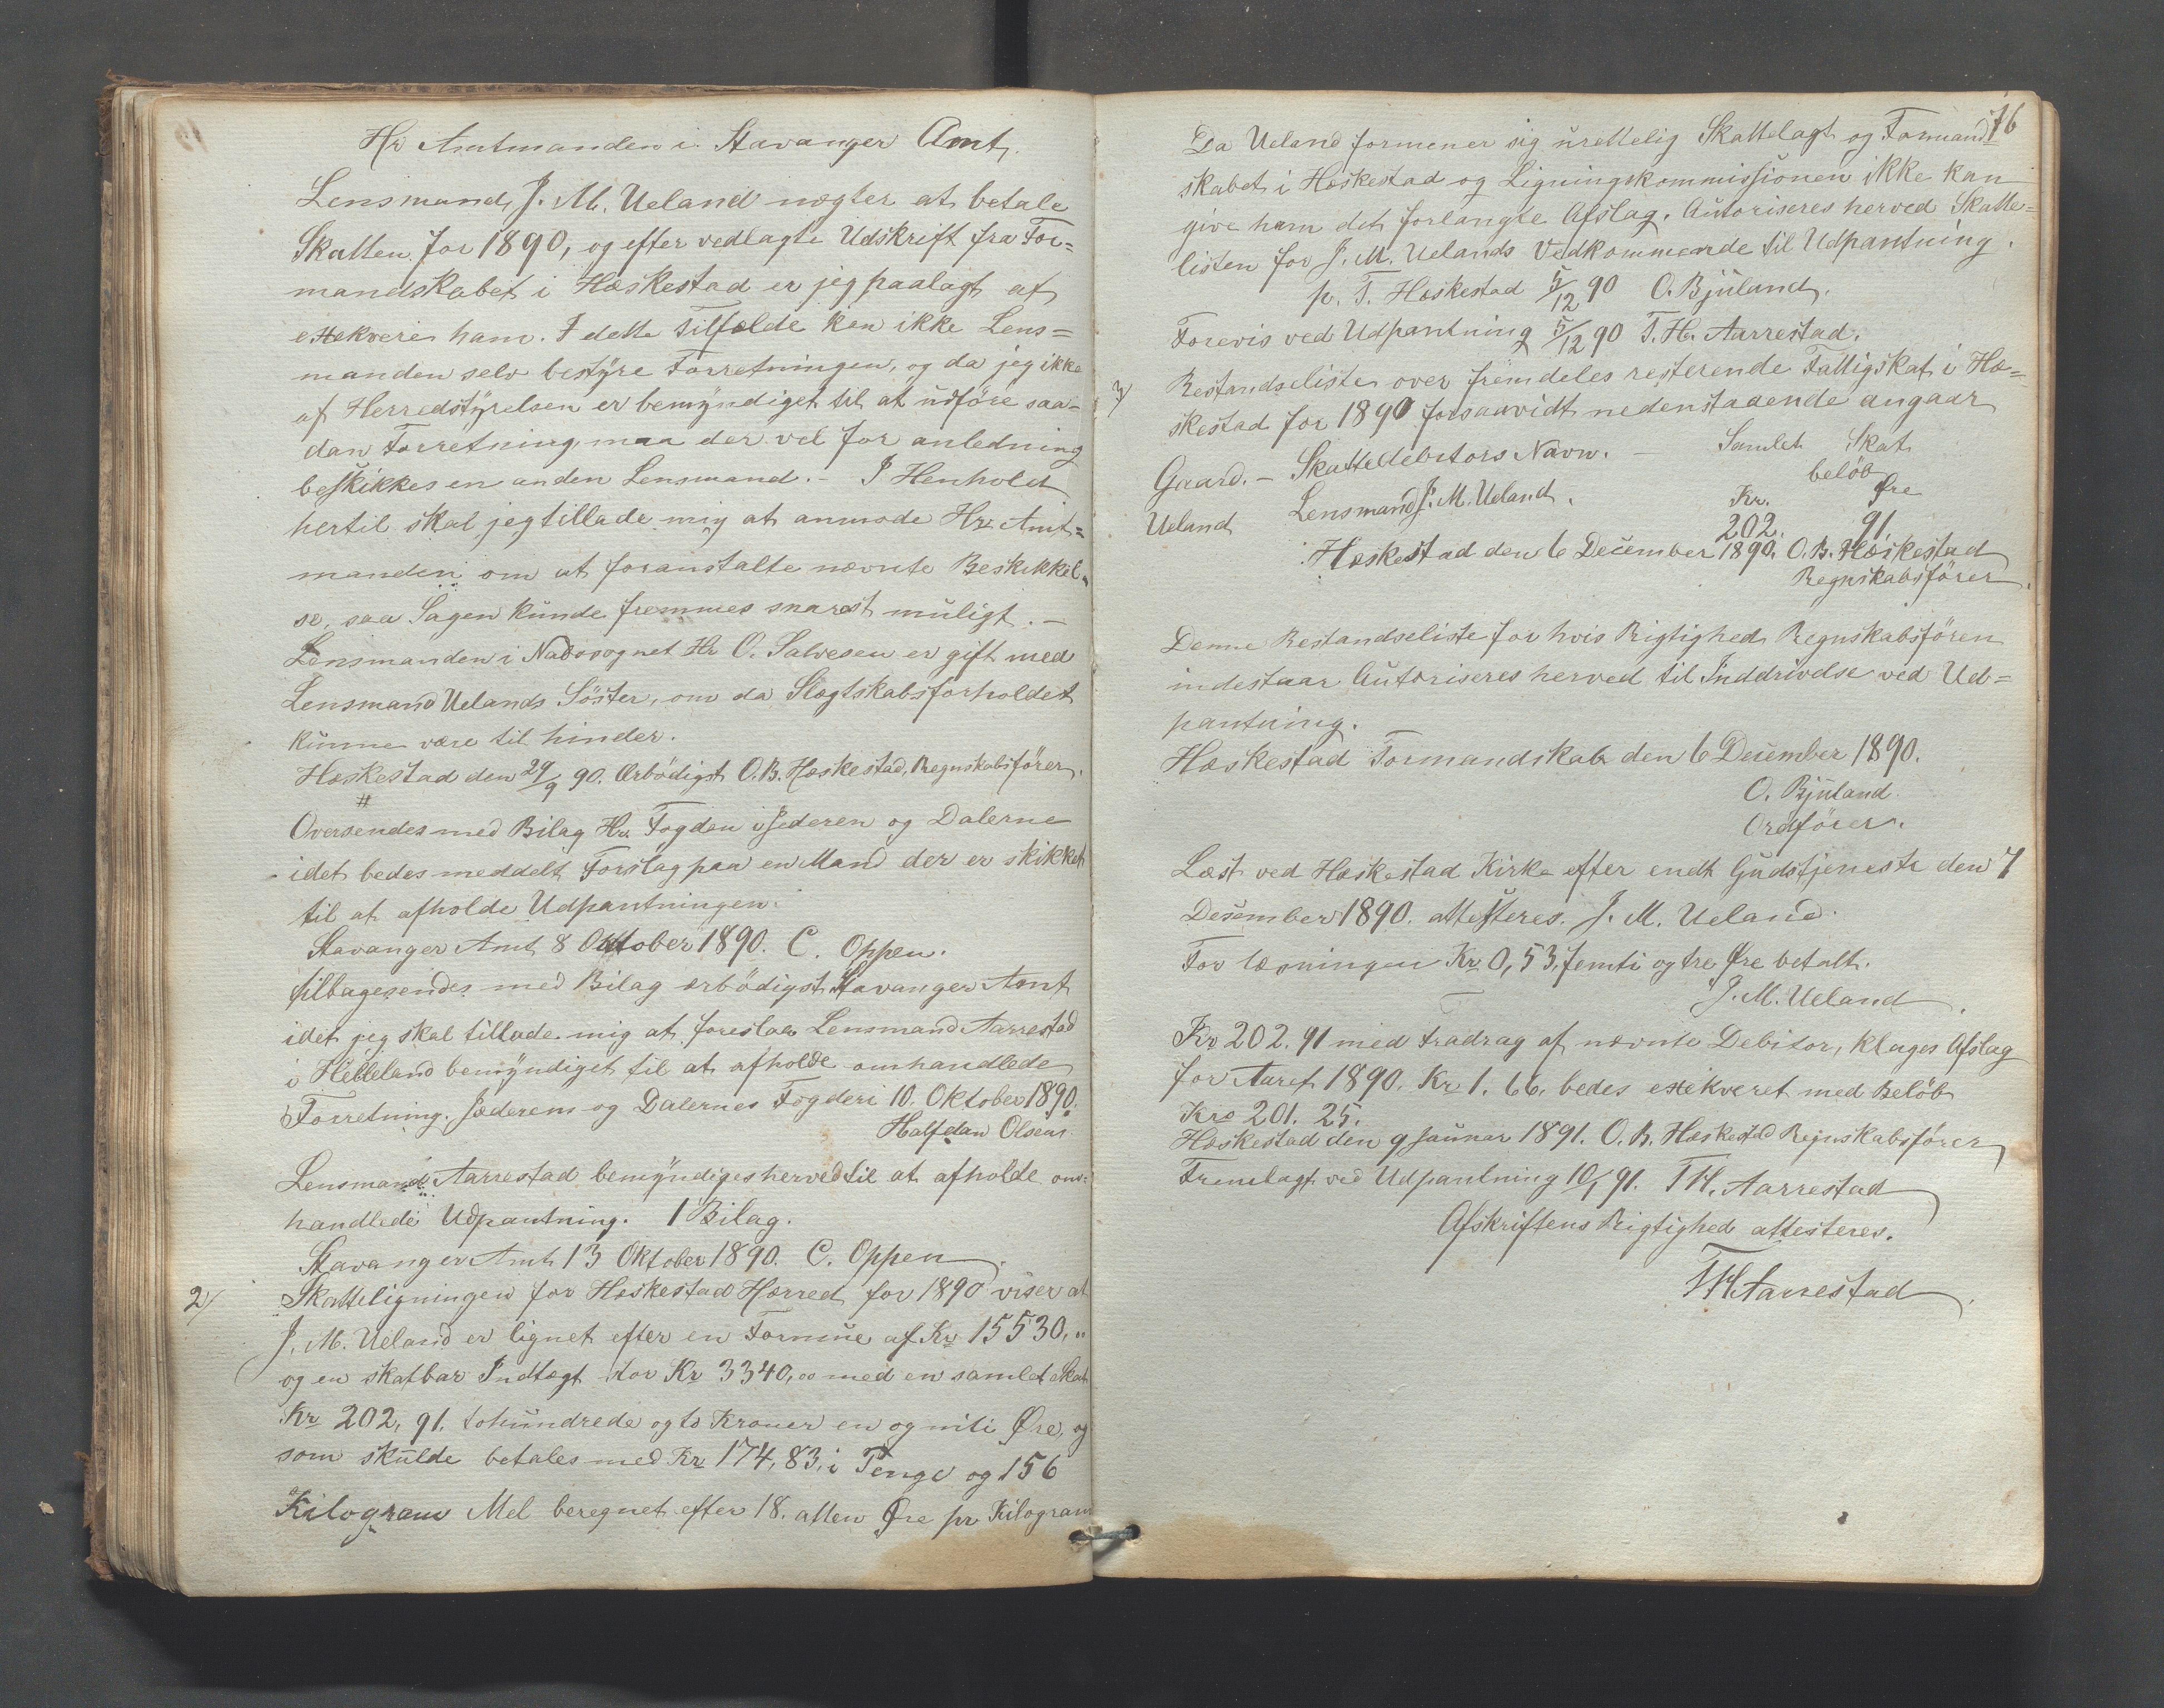 Hr Amtmanden i Stavanger Amt.
Lensmand, J. M. Ueland nægter at betale
Skatten for 1890, og efter vedlagte Udskrift fra For=
mandskabet i Hæskestad er jeg paalagt at
exekvere ham. I dette Tilfælde kan ikke Lens=
manden selv bestÿre Forretningen, og da jeg ikke
af Herredstÿrelsen er bemÿndiget til at udföre saa=
dan Forretning, maa der vel for anledning
beskikkes en anden Lensmand. - I Henhold
hertil skal jeg tillade mig at anmode Hr. Amt=
manden om at foranstalte nævnte Beskikkel=
se, saa Sagen kunde fremmes snarest muligt. -
Lensmanden i Nabosognet Hr O. Salvesen er gift med
Lensmand Uelands Söster, om da Slægtskabsforholdet
kunne være til hinder.
Hæskestad den 29/9 90. Ærbödigst O. B. Hæskestad, Regnskabsförer.
#
Oversendes med Bilag Hr. Fogden i Jederen og Dalerne
idet bedes meddelt Forslag paa en Mand der er skikket
til at afholde Udpantningen.
Stavanger Amt 8 Oktober 1890. C. Oppen.
tilbagesendes med Bilag ærbödigst Stavanger Amt
idet jeg skal tillade mig at foreslaa Lensmand Aarrestad
i Helleland bemÿndiget til at afholde omhandlede
Forretning. Jæderens og Dalernes Fogderi 10. Oktober 1890.
Halfdan Olsen.
Lensmand Aarrestad bemÿndiges herved til at afholde om=
handlede Udpantning. 1 Bilag.
Stavanger Amt 13 Oktober 1890. C. Oppen.
2/ Skatteligningen for Hæskestad Herred for 1890 viser at
J. M. Ueland er lignet efter en Formue af Kr 15530,"
og en skatbar Indtægt stor Kr 3340,00 med en samlet Skat
Kr 202, 91. tohundrede og to Kroner en og niti Øre, og
som skulde betales med Kr 174, 83, i Penge og 156
Kilogram Mel beregnet efter 18. atten Øre pr Kilogram
76
Da Ueland formener sig urettelig Skattelagt og Formand=
skabet i Hæskestad og Ligningskommissionen ikke kan
give ham det forlangte Afslag. Autoriseres herved Skatte=
listen for J. M. Uelands Vedkommende til Udpantning.
p. T. Hæskestad 5/12 90 O. Bjuland.
Forevis ved Udpantning 5/12 90 T. H. Aarrestad.
3/ Restandseliste over fremdeles resterende Fattigskat i Hæ=
skestad for 1890 forsaavidt nedenstaaende angaar
Gaard. - Skattedebitors Navn. - Samlet Skat
belöb
Ueland Lensmand J. M. Ueland. Kr. Øre
202. 91.
Hæskestad den 6 December 1890. O. B. Hæskestad
Regnskabsförer.
Denne Restandseliste for hvis Rigtighed Regnskabsfören
indestaar Autoriseres herved til Inddrivelse ved Ud=
pantning.
Hæskestad Formandskab den 6 December 1890.
O. Bjuland.
Ordförer.
Læst ved Hæskestad Kirke efter endt Gudstjeneste den 7
December 1890. attesteres. J. M. Ueland.
For læsningen Kr 0,53, femti og tre Øre betalt.
J. M. Ueland.
Kr 202. 91 med Fradrag af nævnte Debitor, klages Afslag
for Aaret 1890. Kr 1. 66. bedes exekveret med Belöb
Kro 201. 25.
Hæskestad den 9 Januar 1891. O. B. Hæskestad Regnskabsförer
Fremlagt ved Udpantning 10/1 91. T H. Aarrestad
Afskriftens Rigtighed attesteres.
T H. Aarrestad.